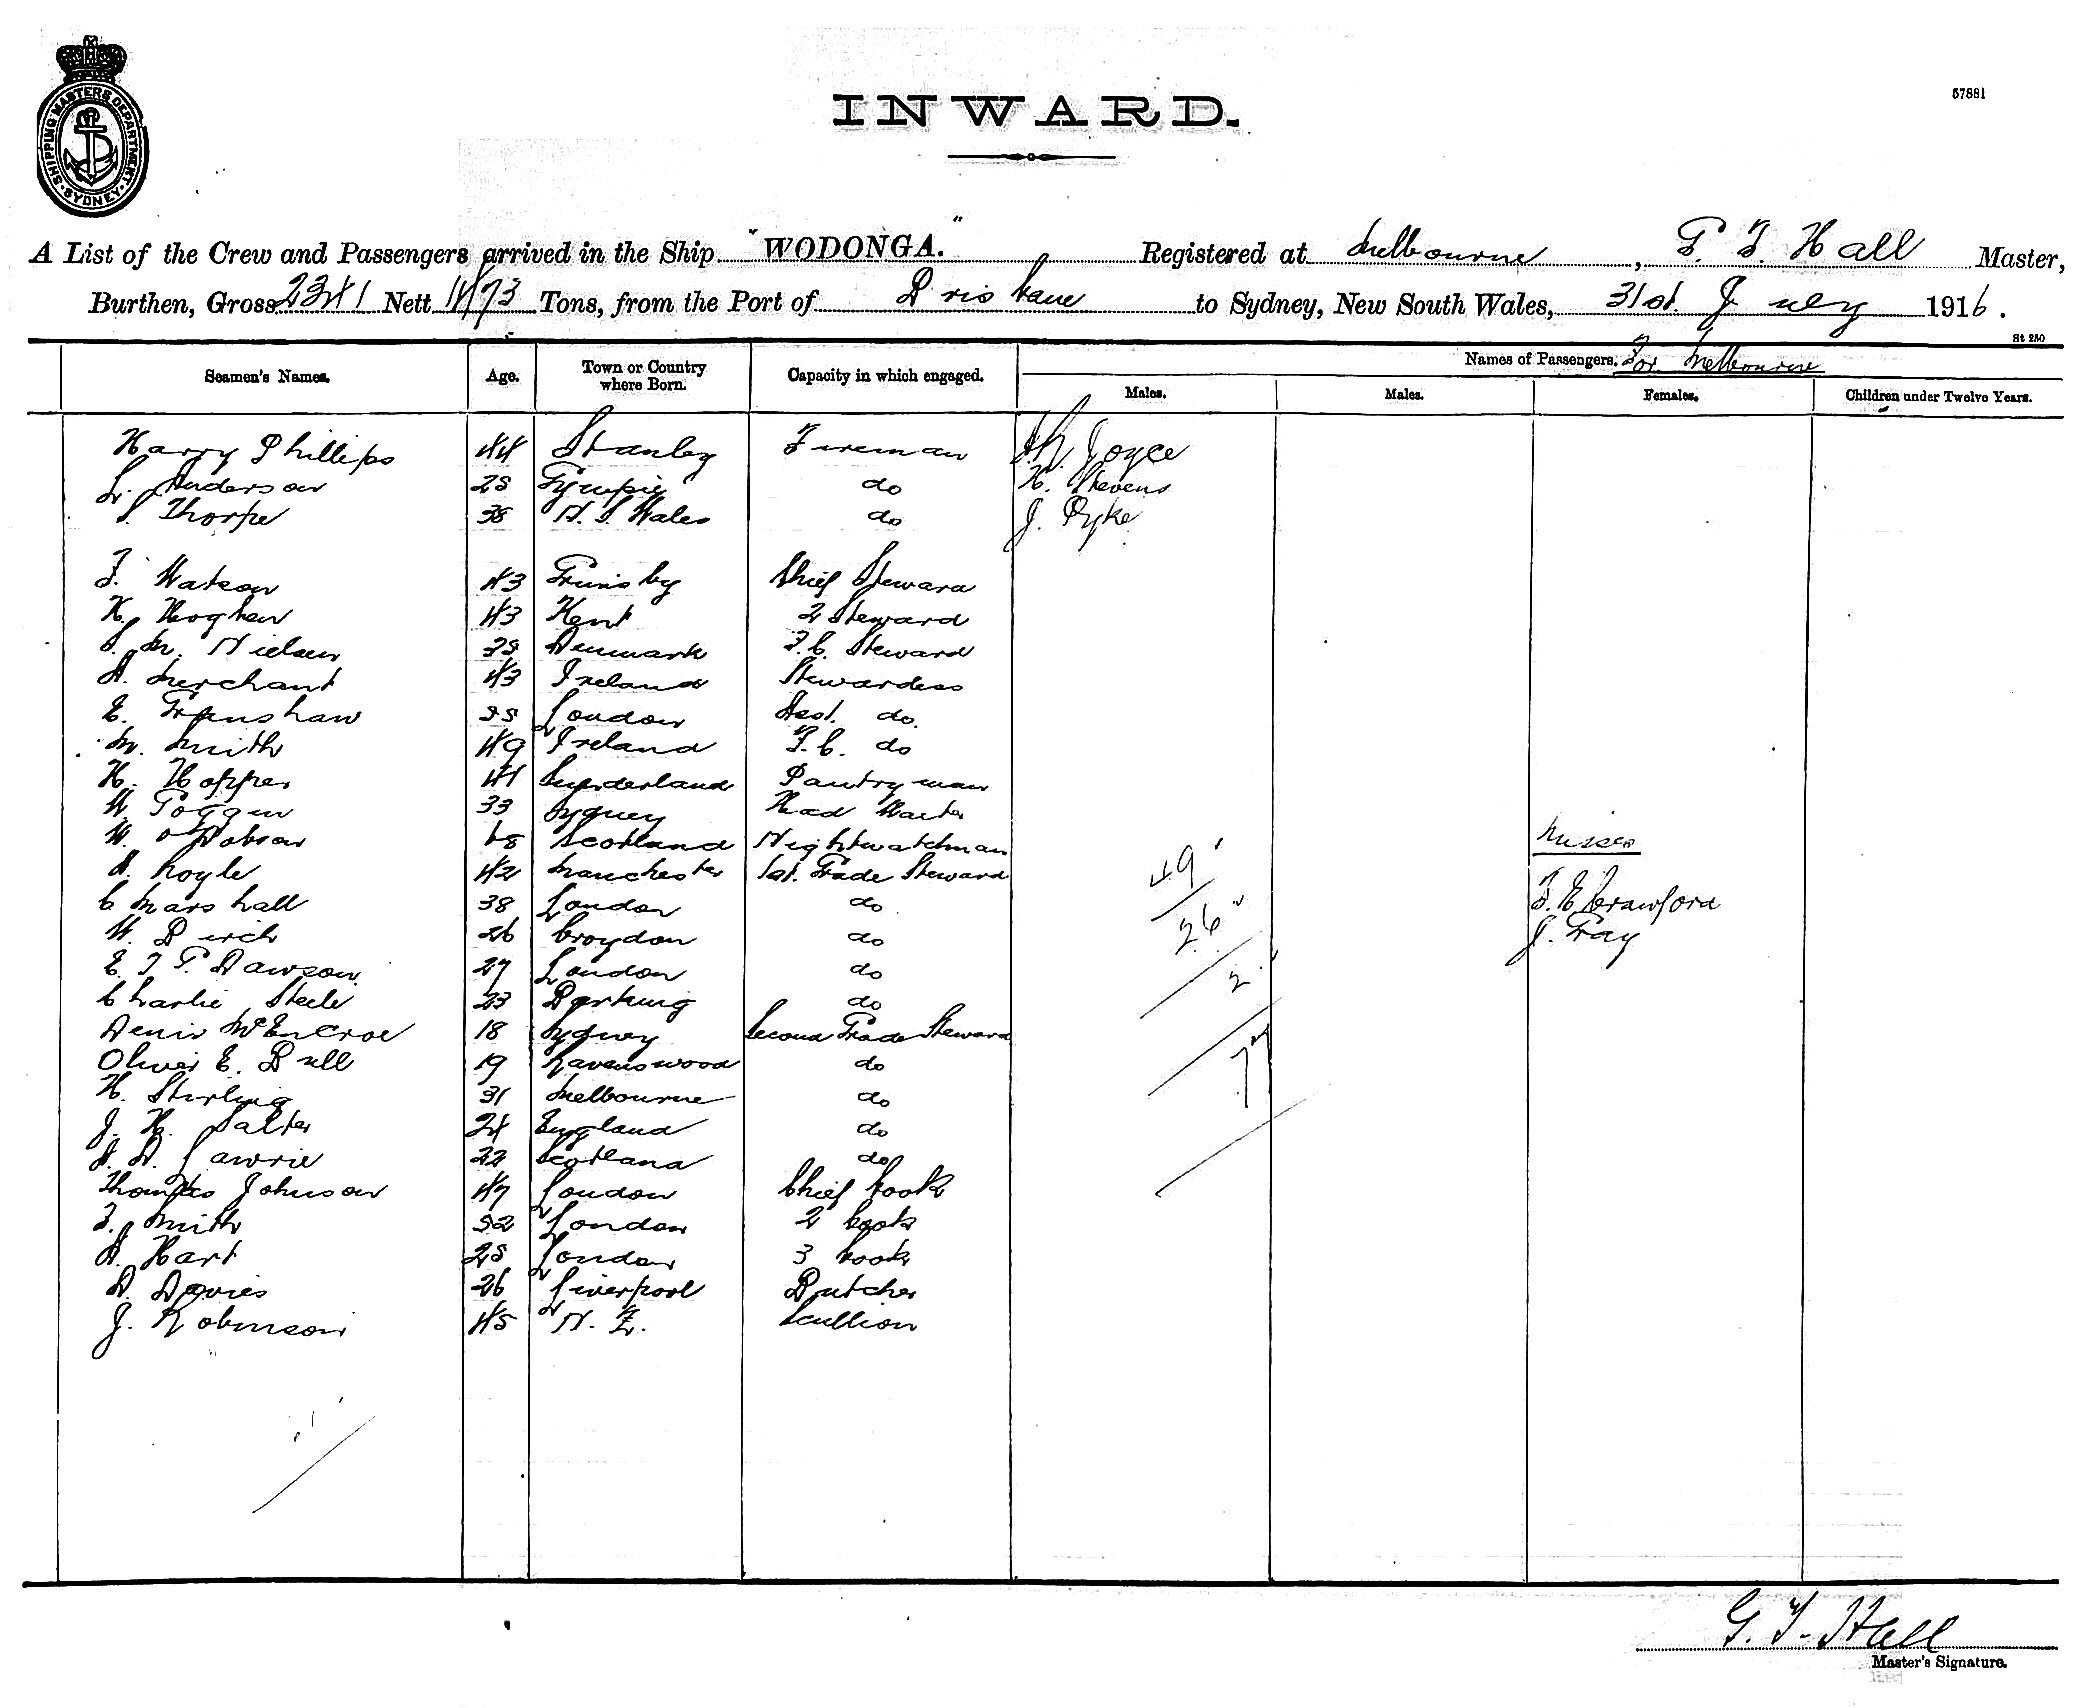 SHIPPING MASTERS DEPARTMENT · SYDNEY ·
INWARD.
57881
A List of the Crew and Passengers arrived in the Ship "WODONGA." Registered at Melbourne, G. T. Hall Master,
Burthen, Gross 2341 Nett 1473 Tons, from the Port of Brisbane to Sydney, New South Wales, 31st. July 1916.
St 250
Seamen's Names. Age. Town or Country where Born. Capacity in which engaged. Names of Passengers. For Melbourne
Males. Males. Females. Children under Twelve Years.
Harry Phillips 44 Stanley Fireman Joyce
L. Anderson 28 Gympie do H. Stevens
S. Thorpe 38 N. S. Wales do J. Pyke
F. Watson 43 Grimsby Chief Steward
H. Hoghen 43 Kent 2 Steward
S. M. Nielsen Denmark F.C. Steward
A. Merchant 43 Ireland Stewardess
E. London Asst. do.
M. Smith 49 Ireland F.C. do
H. Hopper 41 Sunderland Pantryman
W. Goggin 33 Sydney Head Waiter
W. Dobson Scotland Nightwatchman Misses
A. Royle 42 Manchester 1st. Grade Steward 49
C Marshall 38 London do F. E Crawford
W. Birch 26 Croydon do 26 J. Gray
E. T G. Dawson 27 London do 2
Charlie Steele 23 Dorking do
Denis McEncroe 18 Sydney Second Grade Steward
Oliver E. Bull 19 Ravenswood do 77
H. Stirling 31 Melbourne do
J. H. Salter 24 England do
A. A. Lawrie 22 Scotland do
Thomas Johnson 47 London Chief Cook
F. Smith 32 London 2 Cook
A. Hart 28 London 3 Cook
D. Davies 26 Liverpool Butcher
J. Robinson 45 N. Z. Scullion
G. T. Hall
Master's Signature.